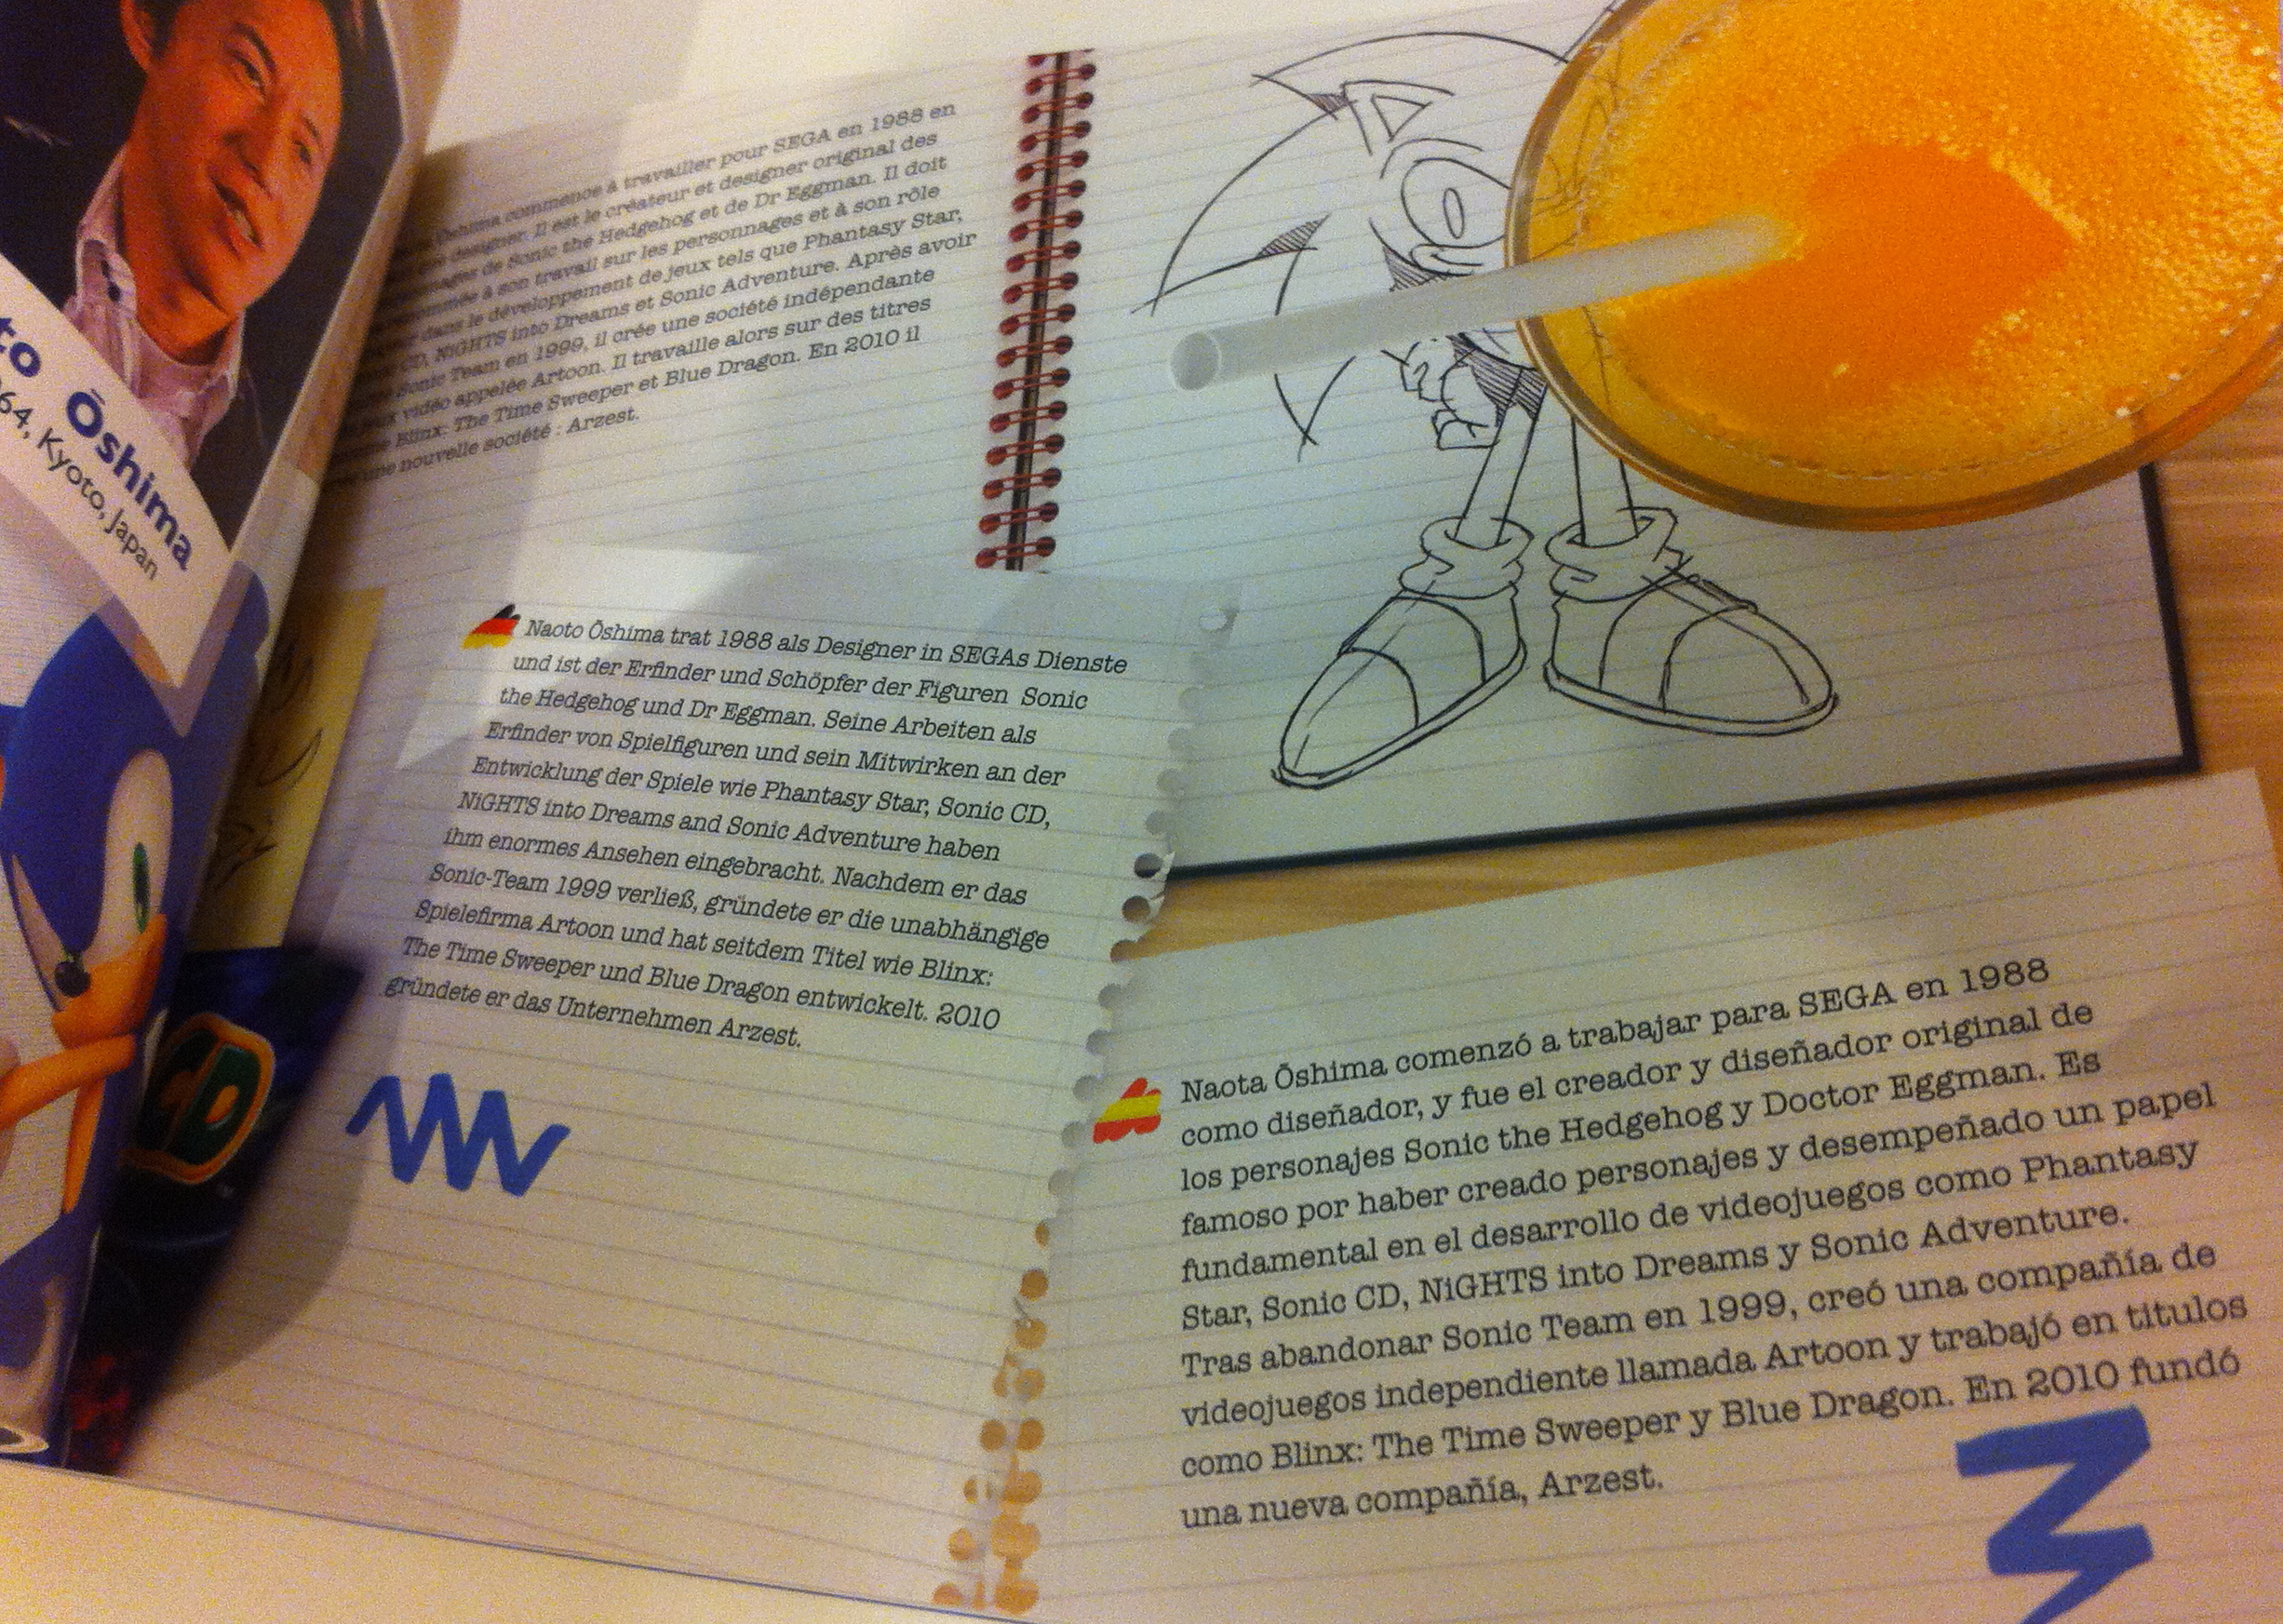 to Ōshima
64, Kyoto, Japan
Oshima commence à travailler pour SEGA en 1988 en
designer. Il est le créateur et designer original des
de Sonic the Hedgehog et de Dr Eggman. Il doit
à son travail sur les personnages et à son rôle
dans le développement de jeux tels que Phantasy Star,
CD, NiGHTS into Dreams et Sonic Adventure. Après avoir
Sonic Team en 1999, il crée une société indépendante
vidéo appelée Artoon. Il travaille alors sur des titres
Blinx: The Time Sweeper et Blue Dragon. En 2010 il
une nouvelle société : Arzest.
Naoto Ōshima trat 1988 als Designer in SEGAs Dienste
und ist der Erfinder und Schöpfer der Figuren Sonic
the Hedgehog und Dr Eggman. Seine Arbeiten als
Erfinder von Spielfiguren und sein Mitwirken an der
Entwicklung der Spiele wie Phantasy Star, Sonic CD,
NiGHTS into Dreams and Sonic Adventure haben
ihm enormes Ansehen eingebracht. Nachdem er das
Sonic-Team 1999 verließ, gründete er die unabhängige
Spielefirma Artoon und hat seitdem Titel wie Blinx:
The Time Sweeper und Blue Dragon entwickelt. 2010
gründete er das Unternehmen Arzest.
CD
Naota Ōshima comenzó a trabajar para SEGA en 1988
como diseñador, y fue el creador y diseñador original de
los personajes Sonic the Hedgehog y Doctor Eggman. Es
famoso por haber creado personajes y desempeñado un papel
fundamental en el desarrollo de videojuegos como Phantasy
Star, Sonic CD, NiGHTS into Dreams y Sonic Adventure.
Tras abandonar Sonic Team en 1999, creó una compañía de
videojuegos independiente llamada Artoon y trabajó en titulos
como Blinx: The Time Sweeper y Blue Dragon. En 2010 fundó
una nueva compañía, Arzest.